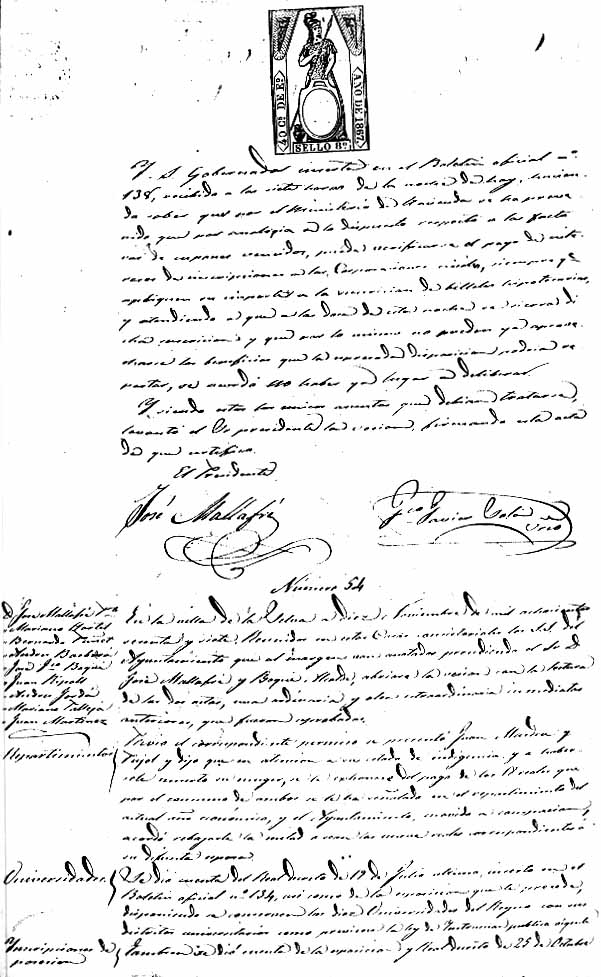 40 Cs DE Eo
AÑO DE 1867
SELLO 8o
Y. S. Gobernador inserta en el Boletin oficial no.
138, recibido a las siete horas de la noche de hoy, hacien
do saber que por el Ministerio de Hacienda se ha preve
nido que por analogia a lo dispuesto respecto a las factu
ras de cupones vencidos, puede verificarse el pago de inte
reses de inscripciones a las Corporaciones civiles, siempre qe
apliquen su importe a la suscricion de billetes hipotecarios,
y atendiendo a que a las doce de esta noche se cierra di
cha suscricion y que por lo mismo no pueden ya aprove
charse los beneficios que la espresada disposicion podria re
portar, se acordó no haber ya lugar a deliberar.
Y siendo estos los unicos asuntos que debian tratarse,
levantó el Sr presidente la sesion, firmando esta acta
de que certifico.
El Presidente
José Mallafré
Fco Javier
Srio
Número 54
D. José Mallafré Pte
Mariano
Bernardo
Barberá
José Jo Boqué
Juan Ripoll
Jordá
Mariano Vallejá
Juan Martinez
En la villa de la Selva a diez Noviembre de mil ochocientos
sesenta y siete. Reunidos en estas Casas consistoriales los S.S. del
Ayuntamiento que al margen van anotados presidiendo el Sor D.
José Mallafré y Boqué Alcalde, abriose la sesion con la lectura
de las dos actas, una ordinaria y otra extraordinaria inmediatas
anteriores, que fueron aprobadas.
Repartimientos
Previo el correspondiente permiso se presentó Juan y
Pujol y dijo que en atencion a su estado de indigencia y a haber
sele muerto su muger, se le exhonere del pago de los 18 reales que
por el consumo de ambos se le ha señalado en el repartimiento del
actual año económico, y el Ayuntamiento, movido a compasion,
acordó rebajarle la mitad o sean los nueve reales correspondientes á
su difunta esposa.
Universidades
Se dió cuenta del Real decreto de 19 de Julio ultimo, inserto en el
Boletin oficial no. 134, asi como de la esposicion que le precede,
disponiendo se conserven las diez Universidades del Reyno con sus
distritos universitarios como previene la ley de Instruccion publica vigente
Inscripciones de
posesion
Tambien se dió cuenta de la esposicion y Real decreto de 25 de Octubre